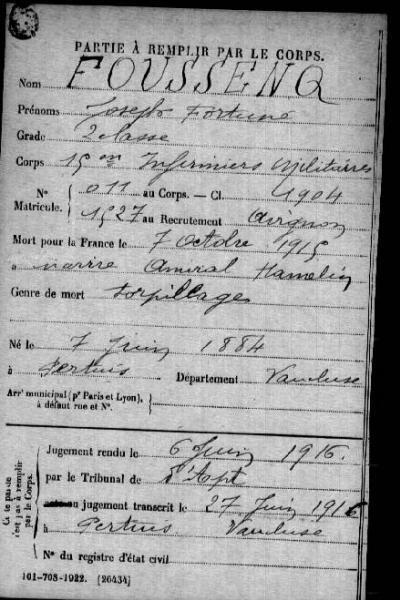 PARTIE À REMPLIR PAR LE CORPS.
Nom FOUSSENQ
Prénoms Joseph Fortuné
Grade 2 classe
Corps 15 em Infirmiers Militaires
N° Matricule. 011 au Corps. — Cl. 1904
1527 au Recrutement Avignon
Mort pour la France le 7 Octobre 1915
à navire Amiral Hamelin
Genre de mort torpillages
Né le 7 Juin 1884
à Pertuis Département Vaucluse
Arr^t municipal (p^r Paris et Lyon),
à défaut rue et N°.
Jugement rendu le 6 Juin 1916.
par le Tribunal de d'Apt
jugement transcrit le 27 Juin 1916
à Pertuis Vaucluse
N° du registre d'état civil
Cette partie
n'est pas à remplir
par le Corps.
101-708-1922. [26434]